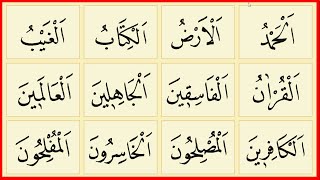 اَلْحَمْدُ اَلْاَرْضُ اَلْكِتَابُ اَلْغَيْبُ
اَلْقُرْاٰنُ اَلْفَاسِقِينَ اَلْجَاهِلِينَ اَلْعَالَمِينَ
اَلْكَافِرِينَ اَلْمُصْلِحُونَ اَلْخَاسِرُونَ اَلْمُفْلِحُونَ